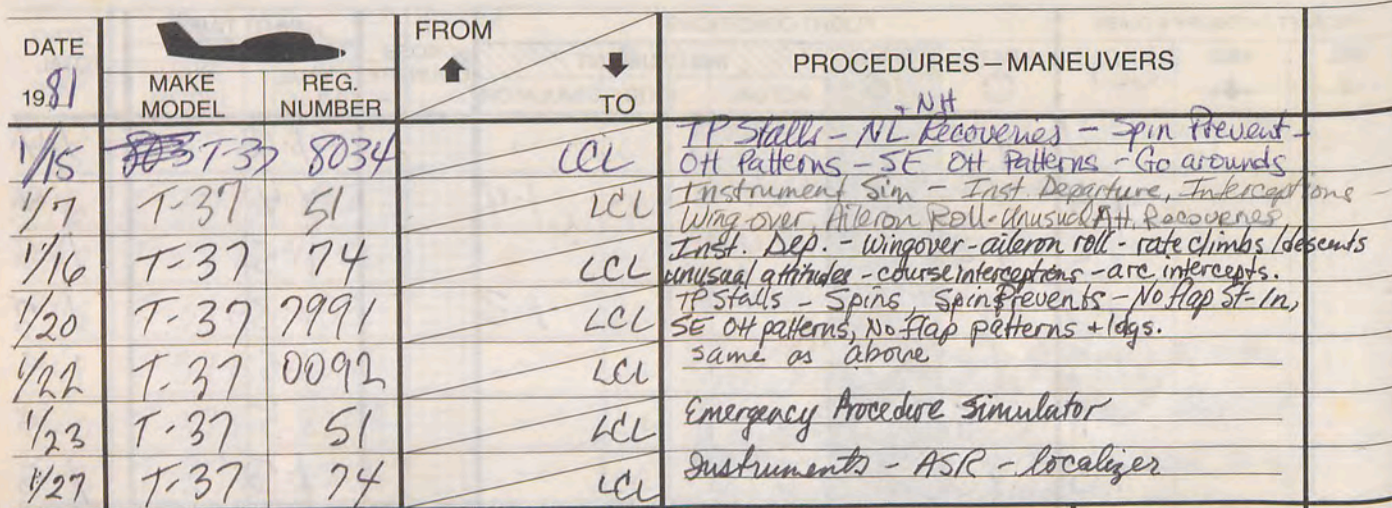 DATE
1981
MAKE MODEL
REG. NUMBER
FROM
TO
PROCEDURES–MANEUVERS
+ NH
1/15 T-37 8034 LCL TP Stalls - NL Recoveries - Spin Prevent -
OH Patterns - SE OH Patterns - Go arounds
1/7 T-37 51 LCL Instrument Sim - Inst. Departure, Interceptions -
Wing over, Aileron Roll - Unusual Att. Recoveries
1/16 T-37 74 LCL Inst. Dep. - wingover - aileron roll - rate climbs / descents
unusual attitudes - course interceptions - arc intercepts.
1/20 T-37 7991 LCL TP Stalls - Spins, Spin Prevents - No flap St-In,
SE OH patterns, No flap patterns + ldgs.
1/22 T-37 0092 LCL same as above
1/23 T-37 51 LCL Emergency Procedure Simulator
1/27 T-37 74 LCL Instruments - ASR - localizer